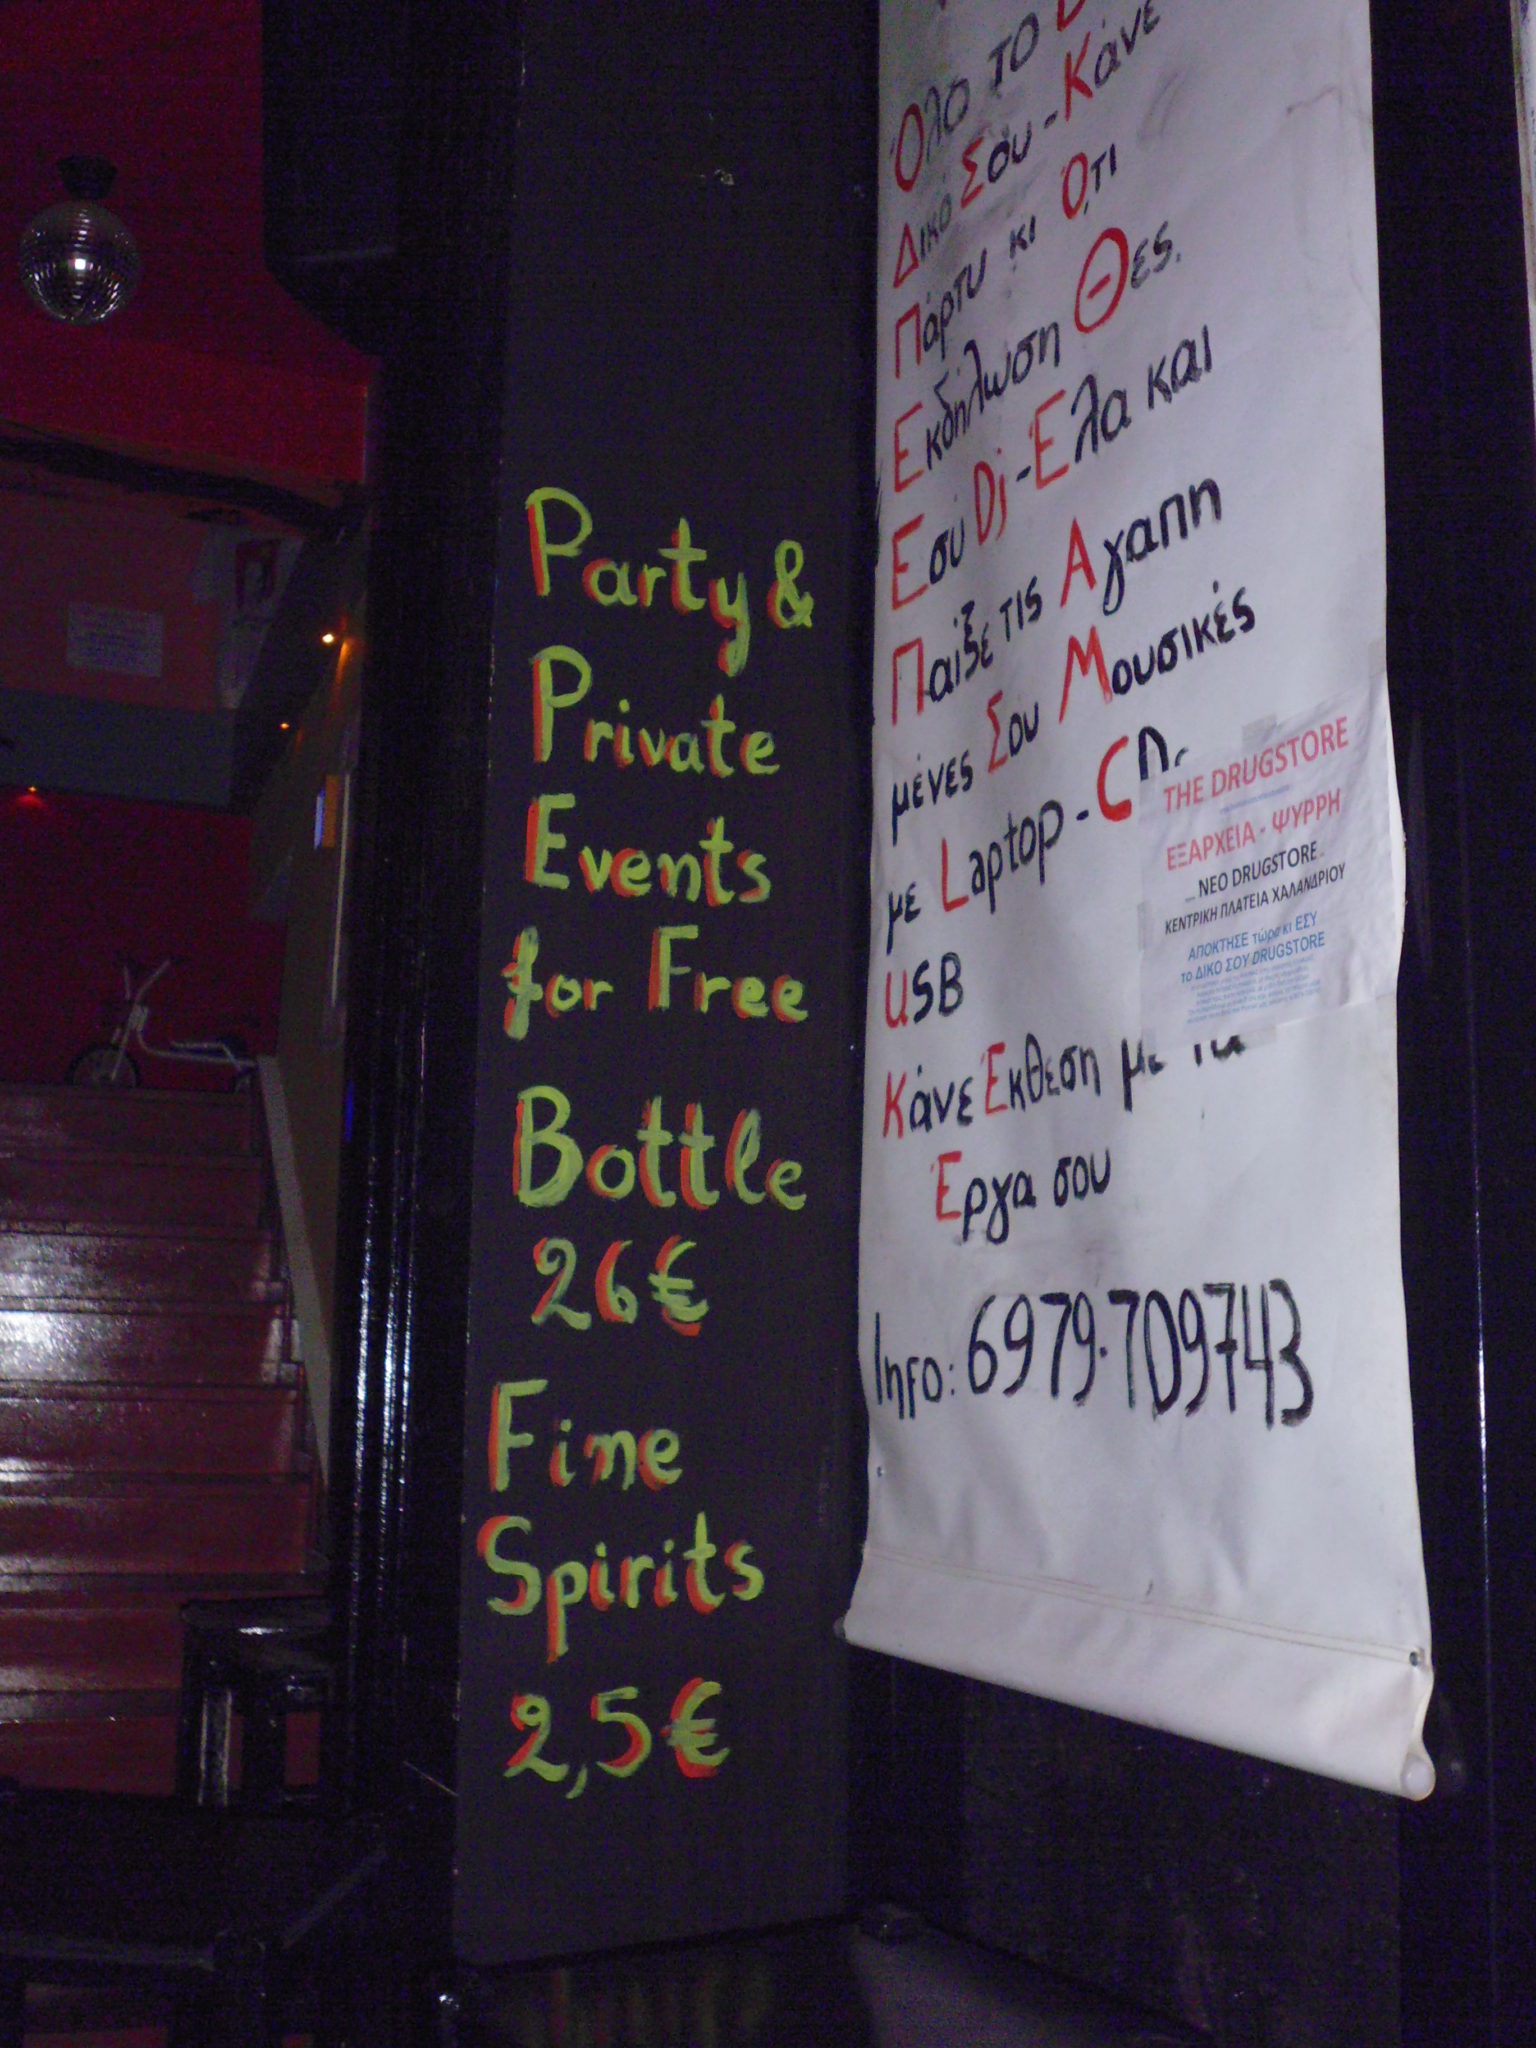 Party &
Private
Events
for Free
Bottle
26€
Fine
Spirits
2,5€
Όλο το
Δικό Σου - Κάνε
Πάρτυ κι Ότι
Εκδήλωση Θες.
Εσύ Dj - Έλα και
Παίξε τις Αγαπη
μένες Σου Μουσικές
με Laptop - CD
USB
Κάνε Έκθεση με τα
Έργα σου
Info: 6979.709743
THE DRUGSTORE
ΕΞΑΡΧΕΙΑ - ΨΥΡΡΗ
... ΝΕΟ DRUGSTORE..
ΚΕΝΤΡΙΚΗ ΠΛΑΤΕΙΑ ΧΑΛΑΝΔΡΙΟΥ
ΑΠΟΚΤΗΣΕ τώρα κι ΕΣΥ
το ΔΙΚΟ ΣΟΥ DRUGSTORE